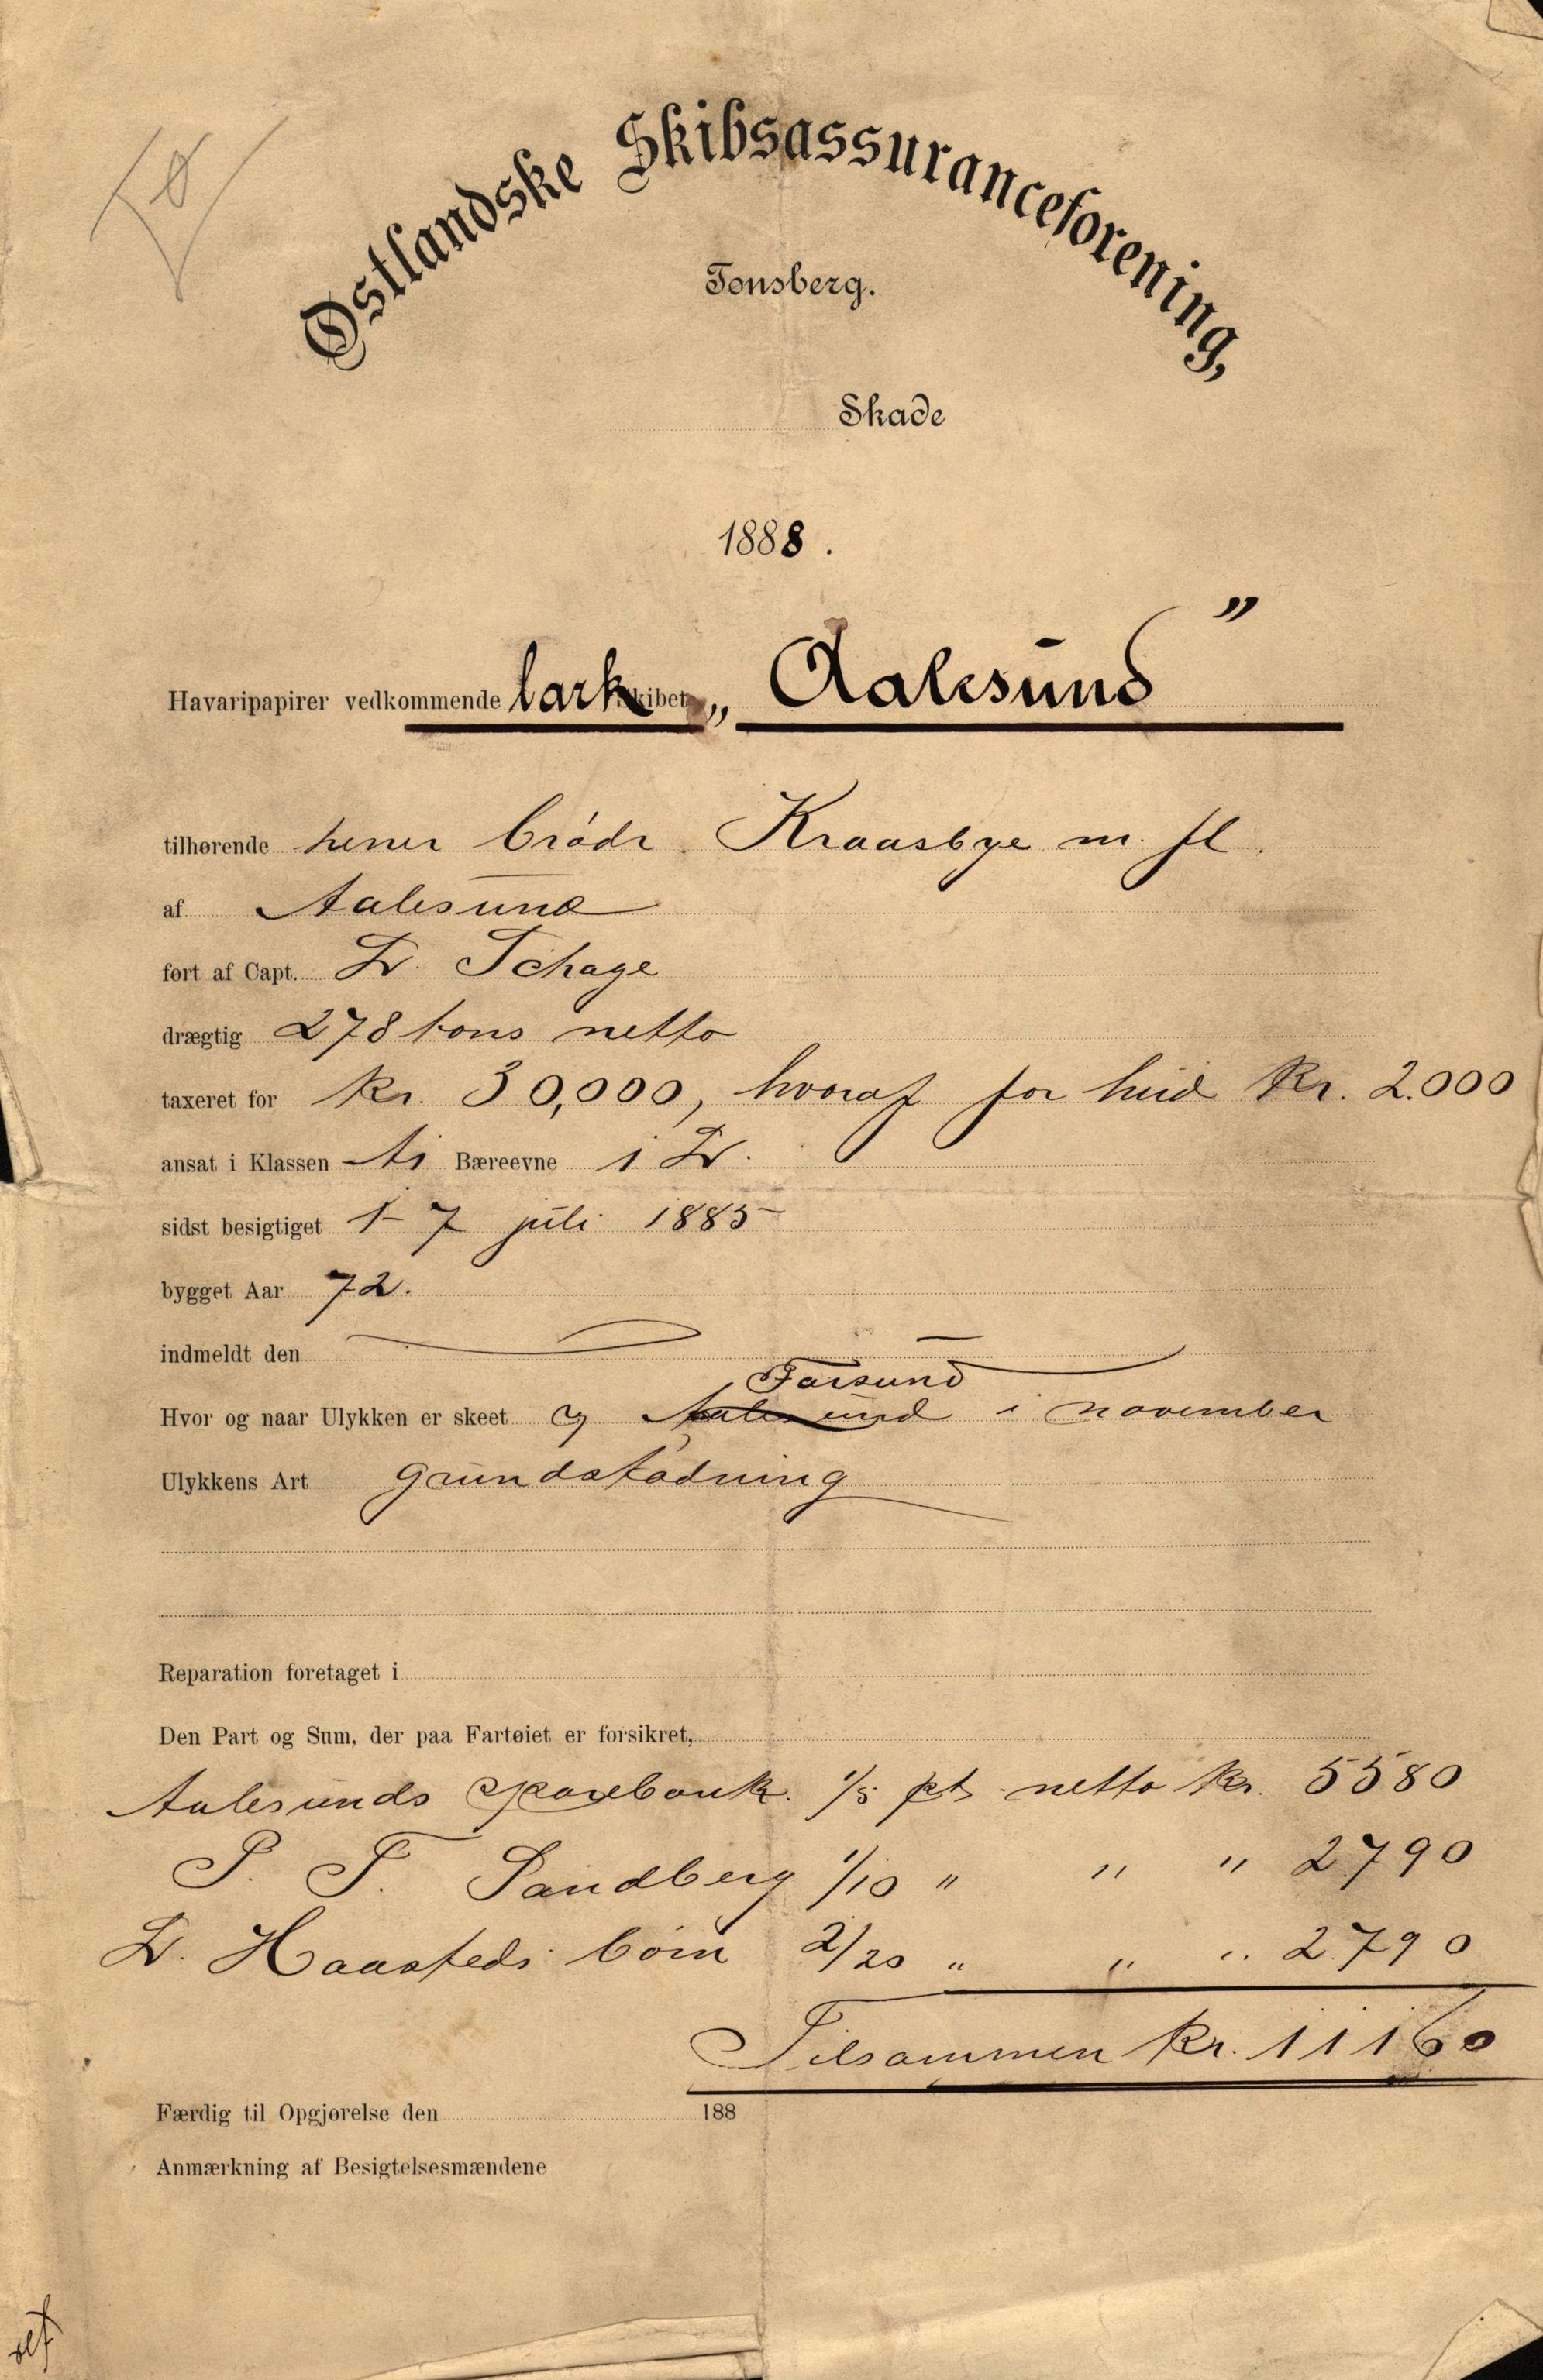 Østlandske Skibsassuranceforening,
Tonsberg.
Skade
1888.
Havaripapirer vedkommende bark „Aalesund”
tilhørende herrer brødr. Kraasbye m. fl.
af Aalesund
ført af Capt. L. Schage
drægtig 278 tons netto
taxeret for kr. 30,000, hvoraf for hud kr. 2.000
ansat i Klassen A1 Bæreevne 1 L.
sidst besigtiget 1-7 juli 1885
bygget Aar 72.
indmeldt den
Farsund
Hvor og naar Ulykken er skeet og Aalesund i november
Ulykkens Art grundstødning
Reparation foretaget i
Den Part og Sum, der paa Fartøiet er forsikret,
Aalesunds sparebank. 1/5 pt netto kr. 5580
P. F. Sandberg 1/10 " " " 2790
L. Haasteds børn 2/20 " " " 2790
Tilsammen kr. 11160
Færdig til Opgjørelse den 188
Anmærkning af Besigtelsesmændene